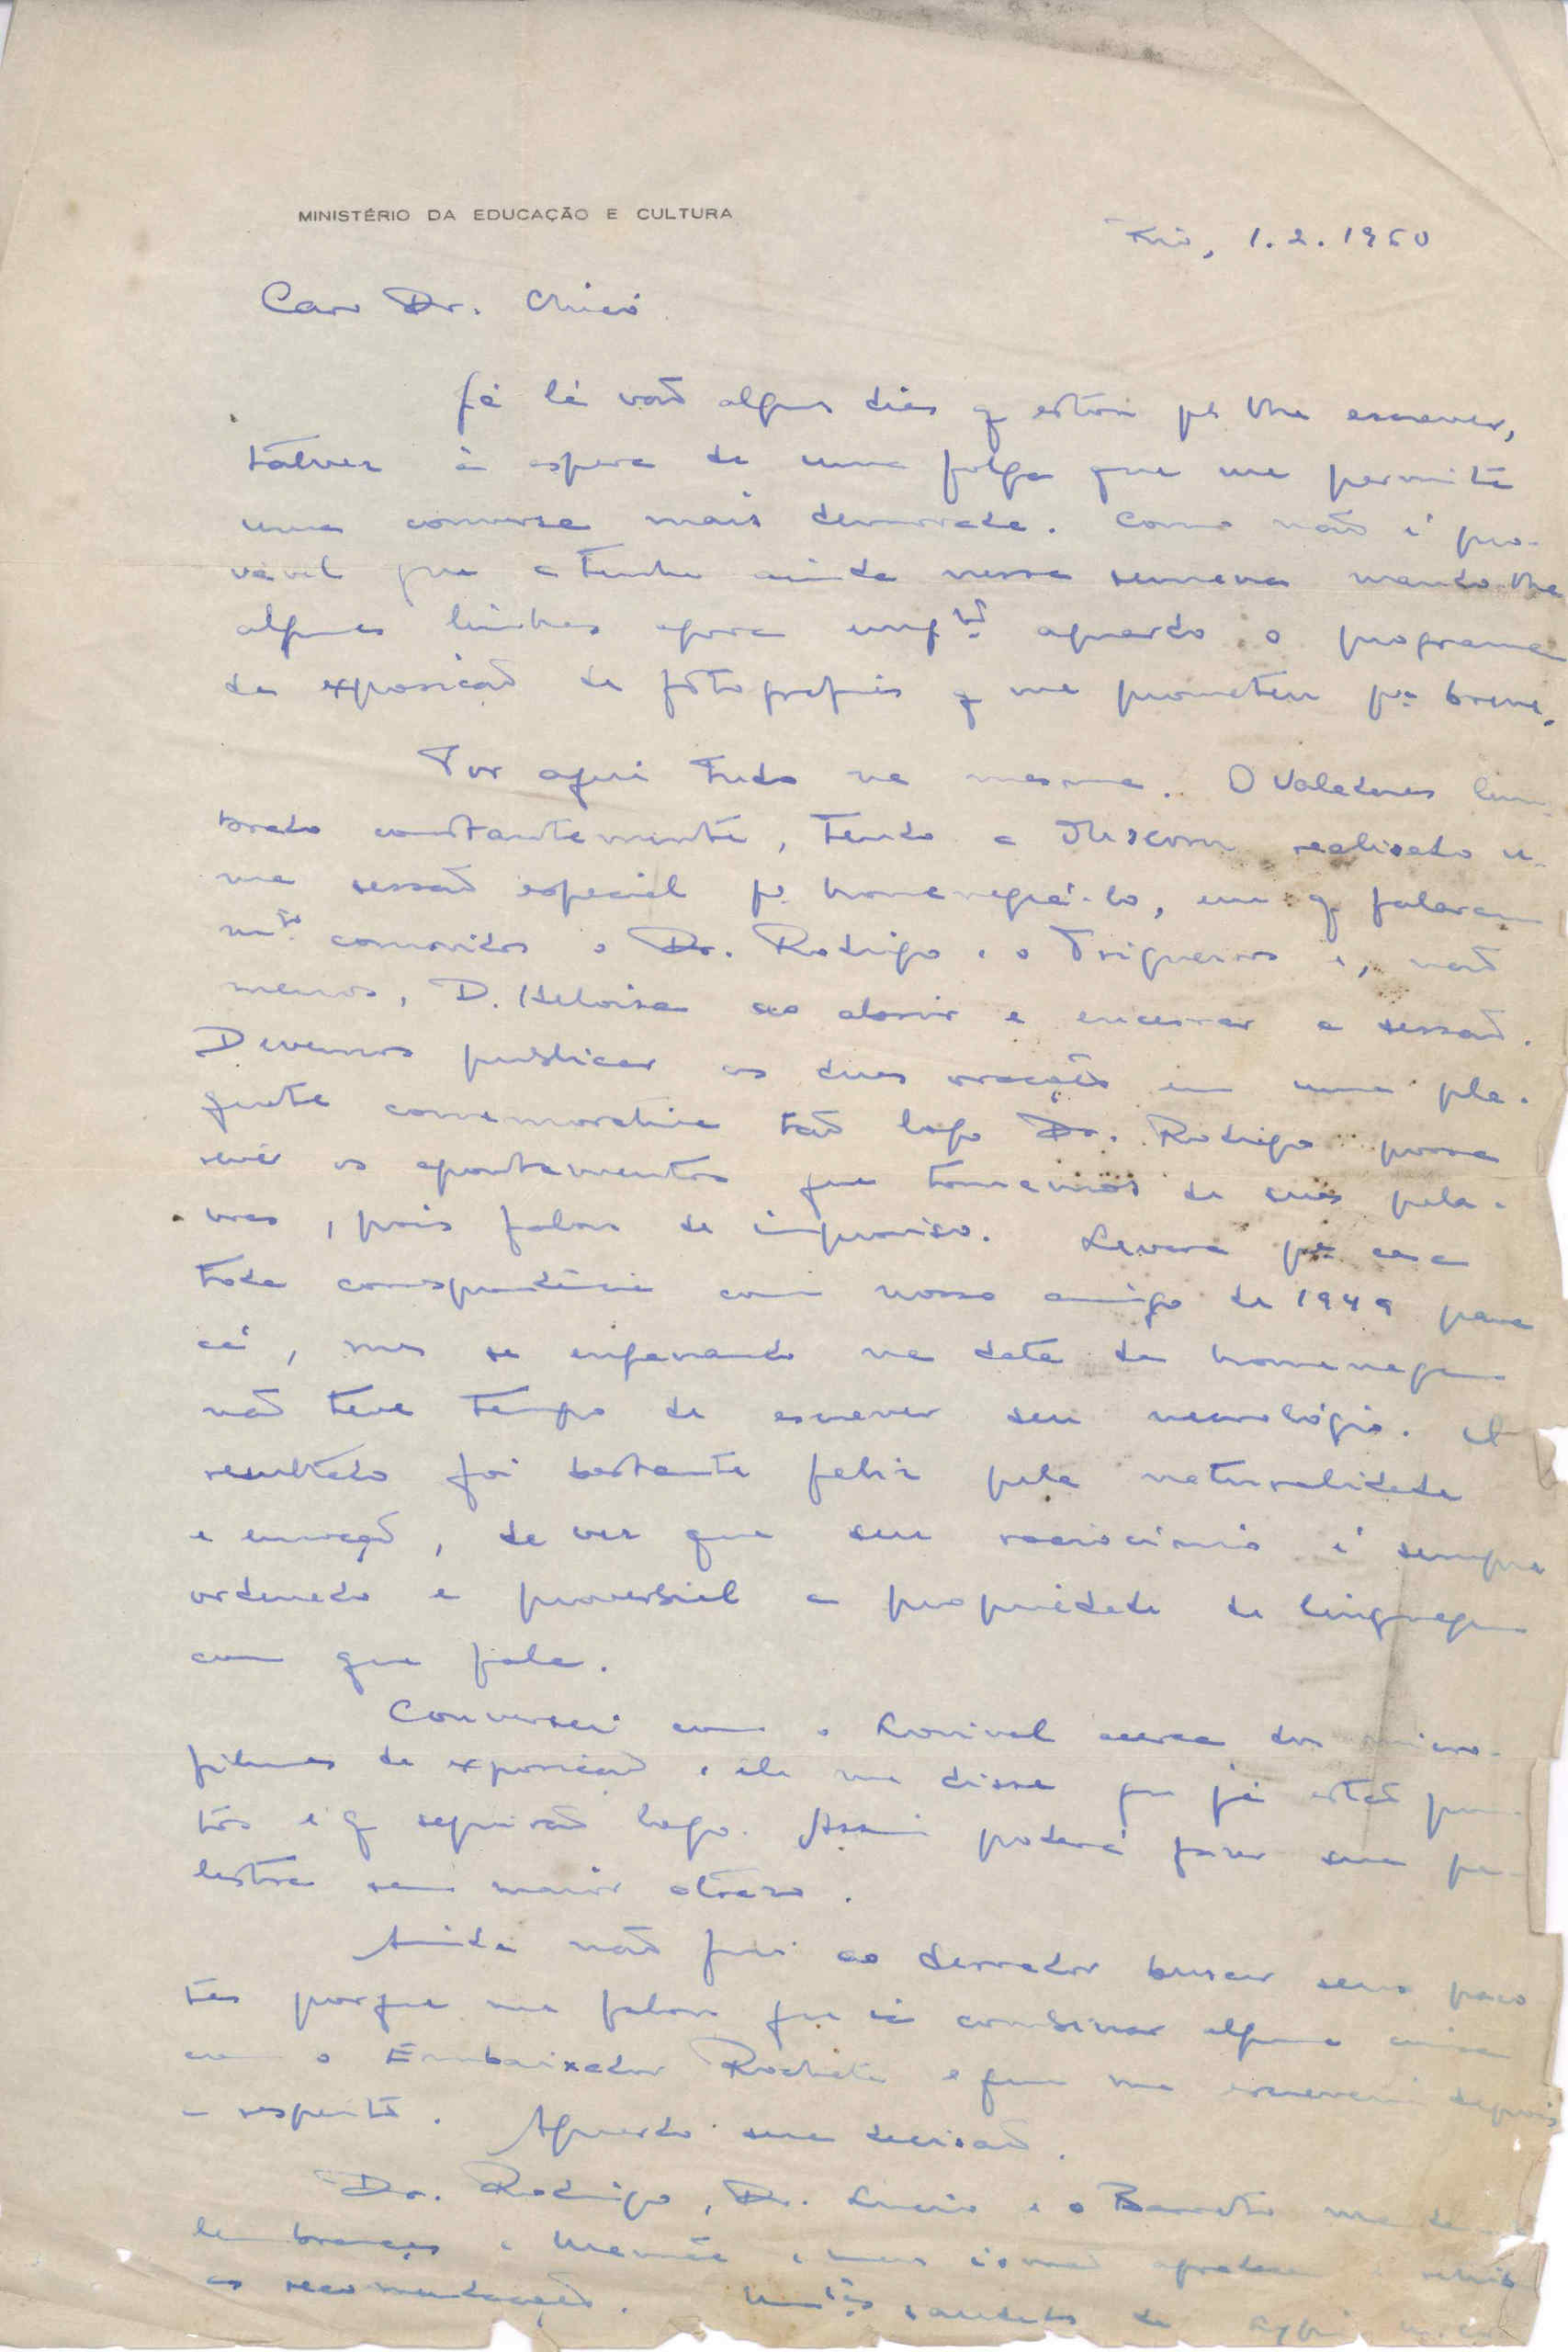 MINISTÉRIO DA EDUCAÇÃO E CULTURA
Rio, 1.2.1960
Caro Dr. Chicó
Já lá vão alguns dias q estou pª lhe escrever,
talvez à espera de uma folga que me permita
uma conversa mais demorada. Como não é pro-
vável que a tenha ainda nessa semana mando-lhe
algumas linhas agora enqto aguardo o programa
da exposição de fotografias q me prometeu pª breve.
Por aqui tudo na mesma. O Valadares lem-
brado constantemente, tendo a realisado u-
ma sessão especial pª homenageá-lo, em q falaram
mto comovidos o Dr. Rodrigo e o Trigueiros e, não
menos, D. Heloisa ao abrir e encerrar a sessão.
Devemos publicar as duas orações em uma pla-
quete comemorativa tão logo Dr. Rodrigo possa
revêr os apontamentos que tomamos de suas pala-
vras, pois falou de improviso. Levara pª casa
toda correspondência com nosso amigo de 1949 para
cá, mas se enganando na data da homenagem
não teve tempo de escrever seu necrológio. O
resultado foi bastante feliz pela naturalidade
e emoção, de vez que seu raciocínio é sempre
ordenado e proverbial a propriedade da linguagem
com que fala.
Conversei com o acerca dos micro-
filmes da exposição e ele me disse que já estão pron-
tos e q seguirão logo. Assim poderá fazer sua pa-
lestra sem maior atraso.
Ainda não fui ao buscar seus paco
tes porque me falou que ia combinar alguma coisa
com o Embaixador Rocheta e que me escreveria depois
a respeito. Aguardo sua decisão.
Dr. Rodrigo, Dr. Lucio e o Barretto mandam
lembranças e Mamãe e meu irmão agradecem e
as recomendações. saudades de